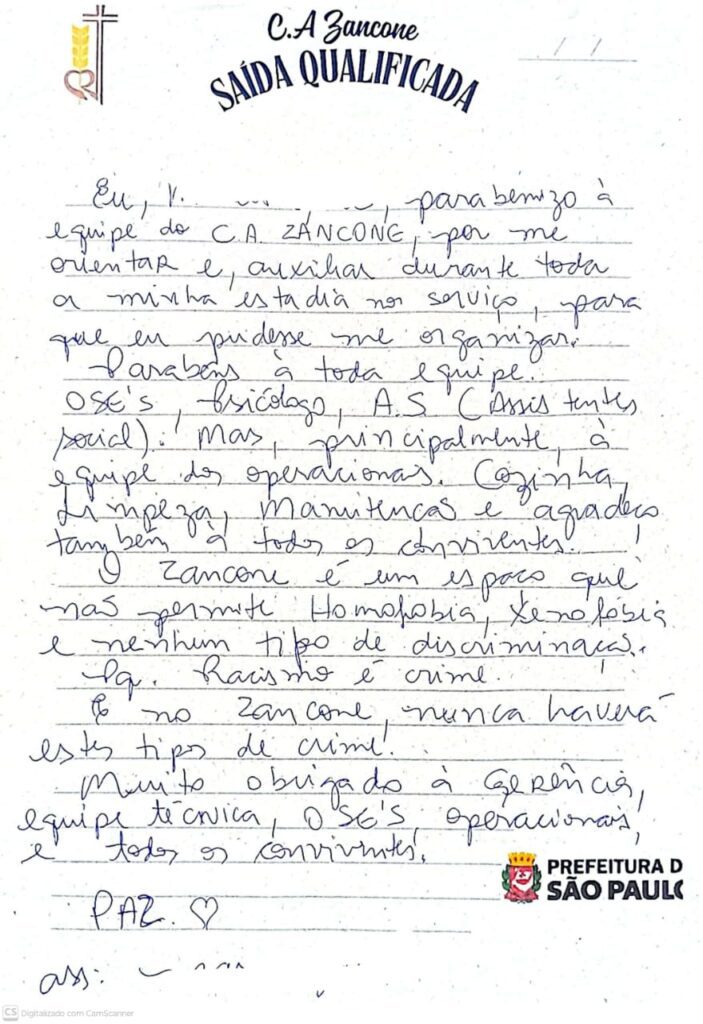 C.A Zancone
SAÍDA QUALIFICADA
/ /
Eu, , parabenizo à
equipe do C.A. ZANCONE, por me
orientar e, auxiliar durante toda
a minha estadia no serviço, para
que eu pudesse me organizar.
Parabéns à toda equipe.
OSE'S, Psicólogo, A.S (Assistentes
social). Mas, principalmente, à
equipe dos operacionais. Cozinha,
Limpeza, Manutencas e agradeço
também à todos os conviventes.!
O Zancone é um espaco que
nas permite Homofobia, Xenofóbia
e nenhum tipo de discriminacas.!
Pq. Racismo é crime.
E no Zancone, nunca haverá
estes tipos de crime!
Muito obrigado à Gerência,
equipe técnica, OSE'S, operacionais,
e todos os conviventes.
PAZ. ♡
ass:
PREFEITURA D
SÃO PAULO
CS Digitalizado com CamScanner